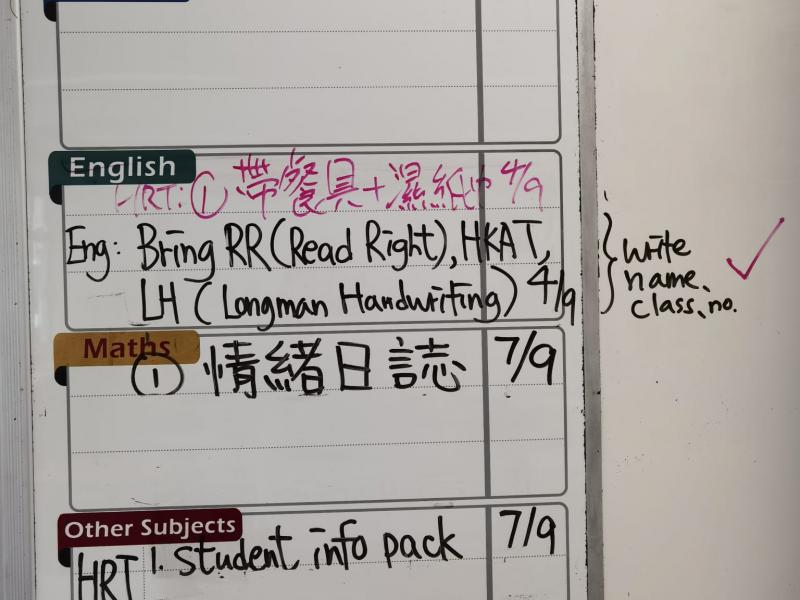 English
HRT: ① 帶餐具+濕紙巾 4/9
Eng: Bring RR (Read Right), HKAT,
LH (Longman Handwriting) 4/9
write
name、
class、no.
Maths
① 情緒日誌 7/9
Other Subjects
HRT 1. Student info pack 7/9